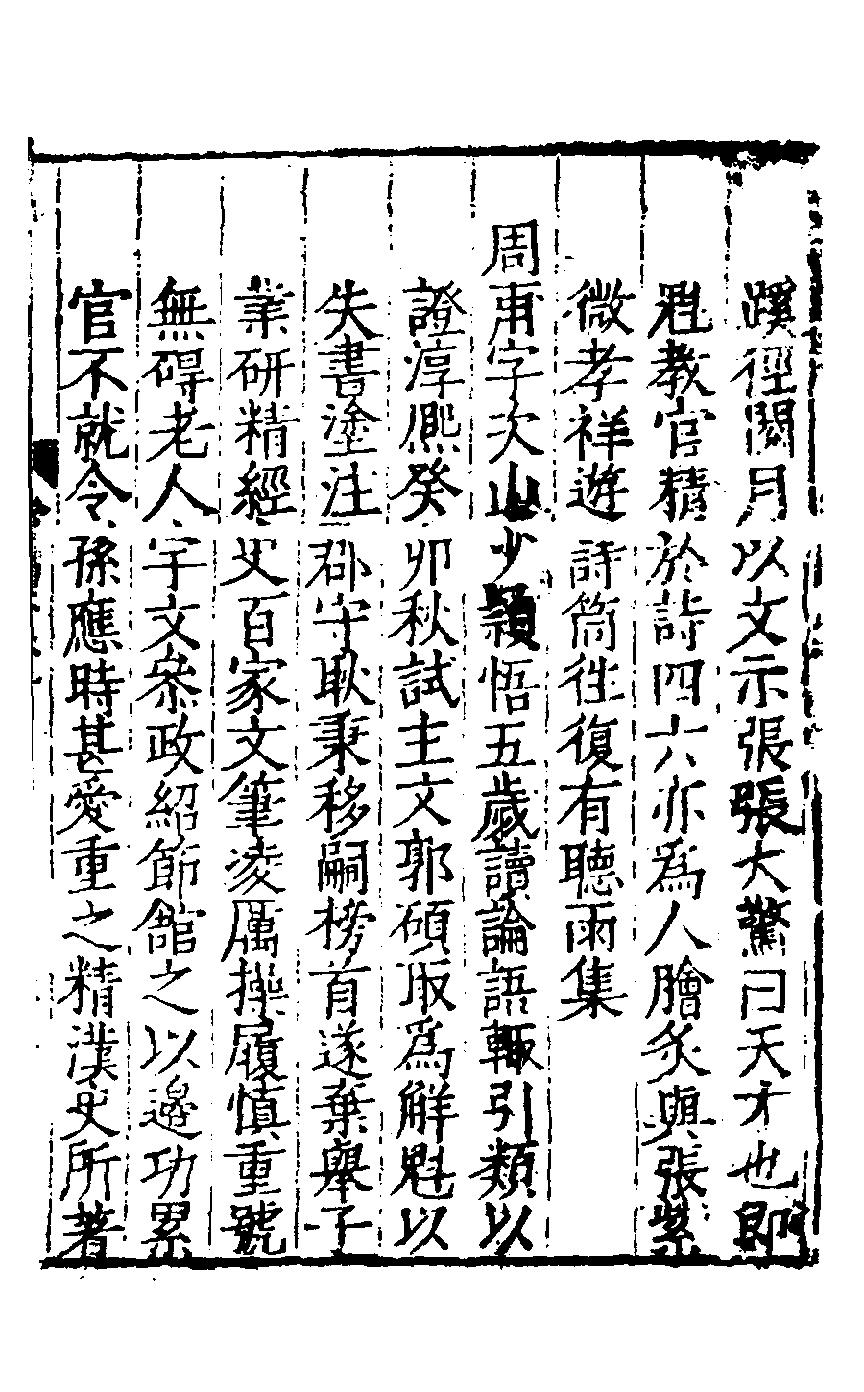 蹊徑閱月以文示張張大驚曰天才也即
尅教官精於詩四六亦爲人膾炙與張紫
微孝祥遊詩筒往復有聽雨集
周甫字次山少穎悟五歲讀論語輒引類以
證淳熙癸卯秋試主文郭碩取爲解魁以
失書塗注郡守耿秉移嗣榜首遂棄舉子
業研精經史百家文筆淩厲操履慎重號
無碍老人宇文叅政紹節舘之以邉功累
官不就令孫應時甚愛重之精漢史所著